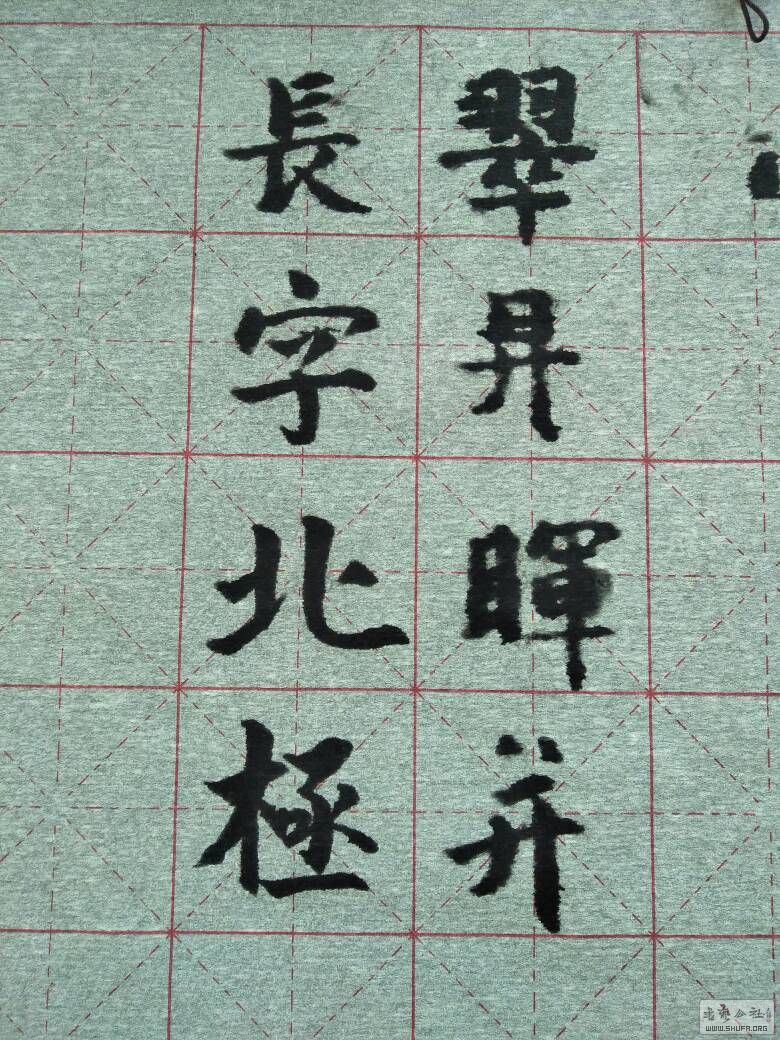 翠昇暉并
長字北極
书艺公社
WWW.SHUFA.ORG